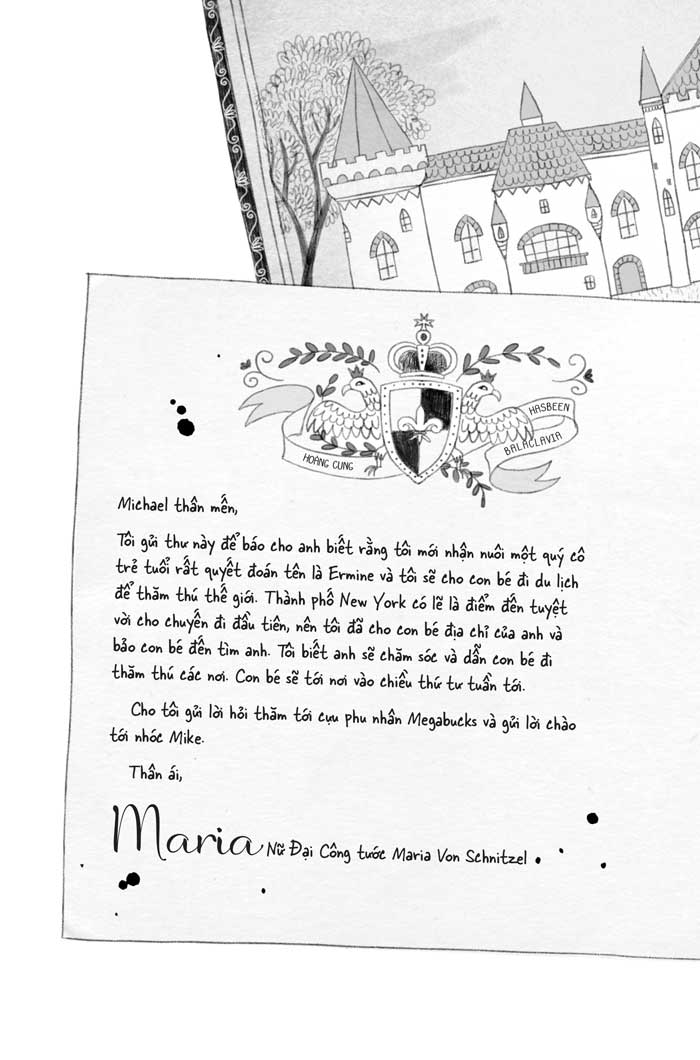 HOÀNG CUNG
HASBEEN
BALACLAVIA
Michael thân mến,
Tôi gửi thư này để báo cho anh biết rằng tôi mới nhận nuôi một quý cô
trẻ tuổi rất quyết đoán tên là Ermine và tôi sẽ cho con bé đi du lịch
để thăm thú thế giới. Thành phố New York có lẽ là điểm đến tuyệt
vời cho chuyến đi đầu tiên, nên tôi đã cho con bé địa chỉ của anh và
bảo con bé đến tìm anh. Tôi biết anh sẽ chăm sóc và dẫn con bé đi
thăm thú các nơi. Con bé sẽ tới nơi vào chiều thứ tư tuần tới.
Cho tôi gửi lời hỏi thăm tới cựu phu nhân Megabucks và gửi lời chào
tới nhóc Mike.
Thân ái,
Maria Nữ Đại Công tước Maria Von Schnitzel